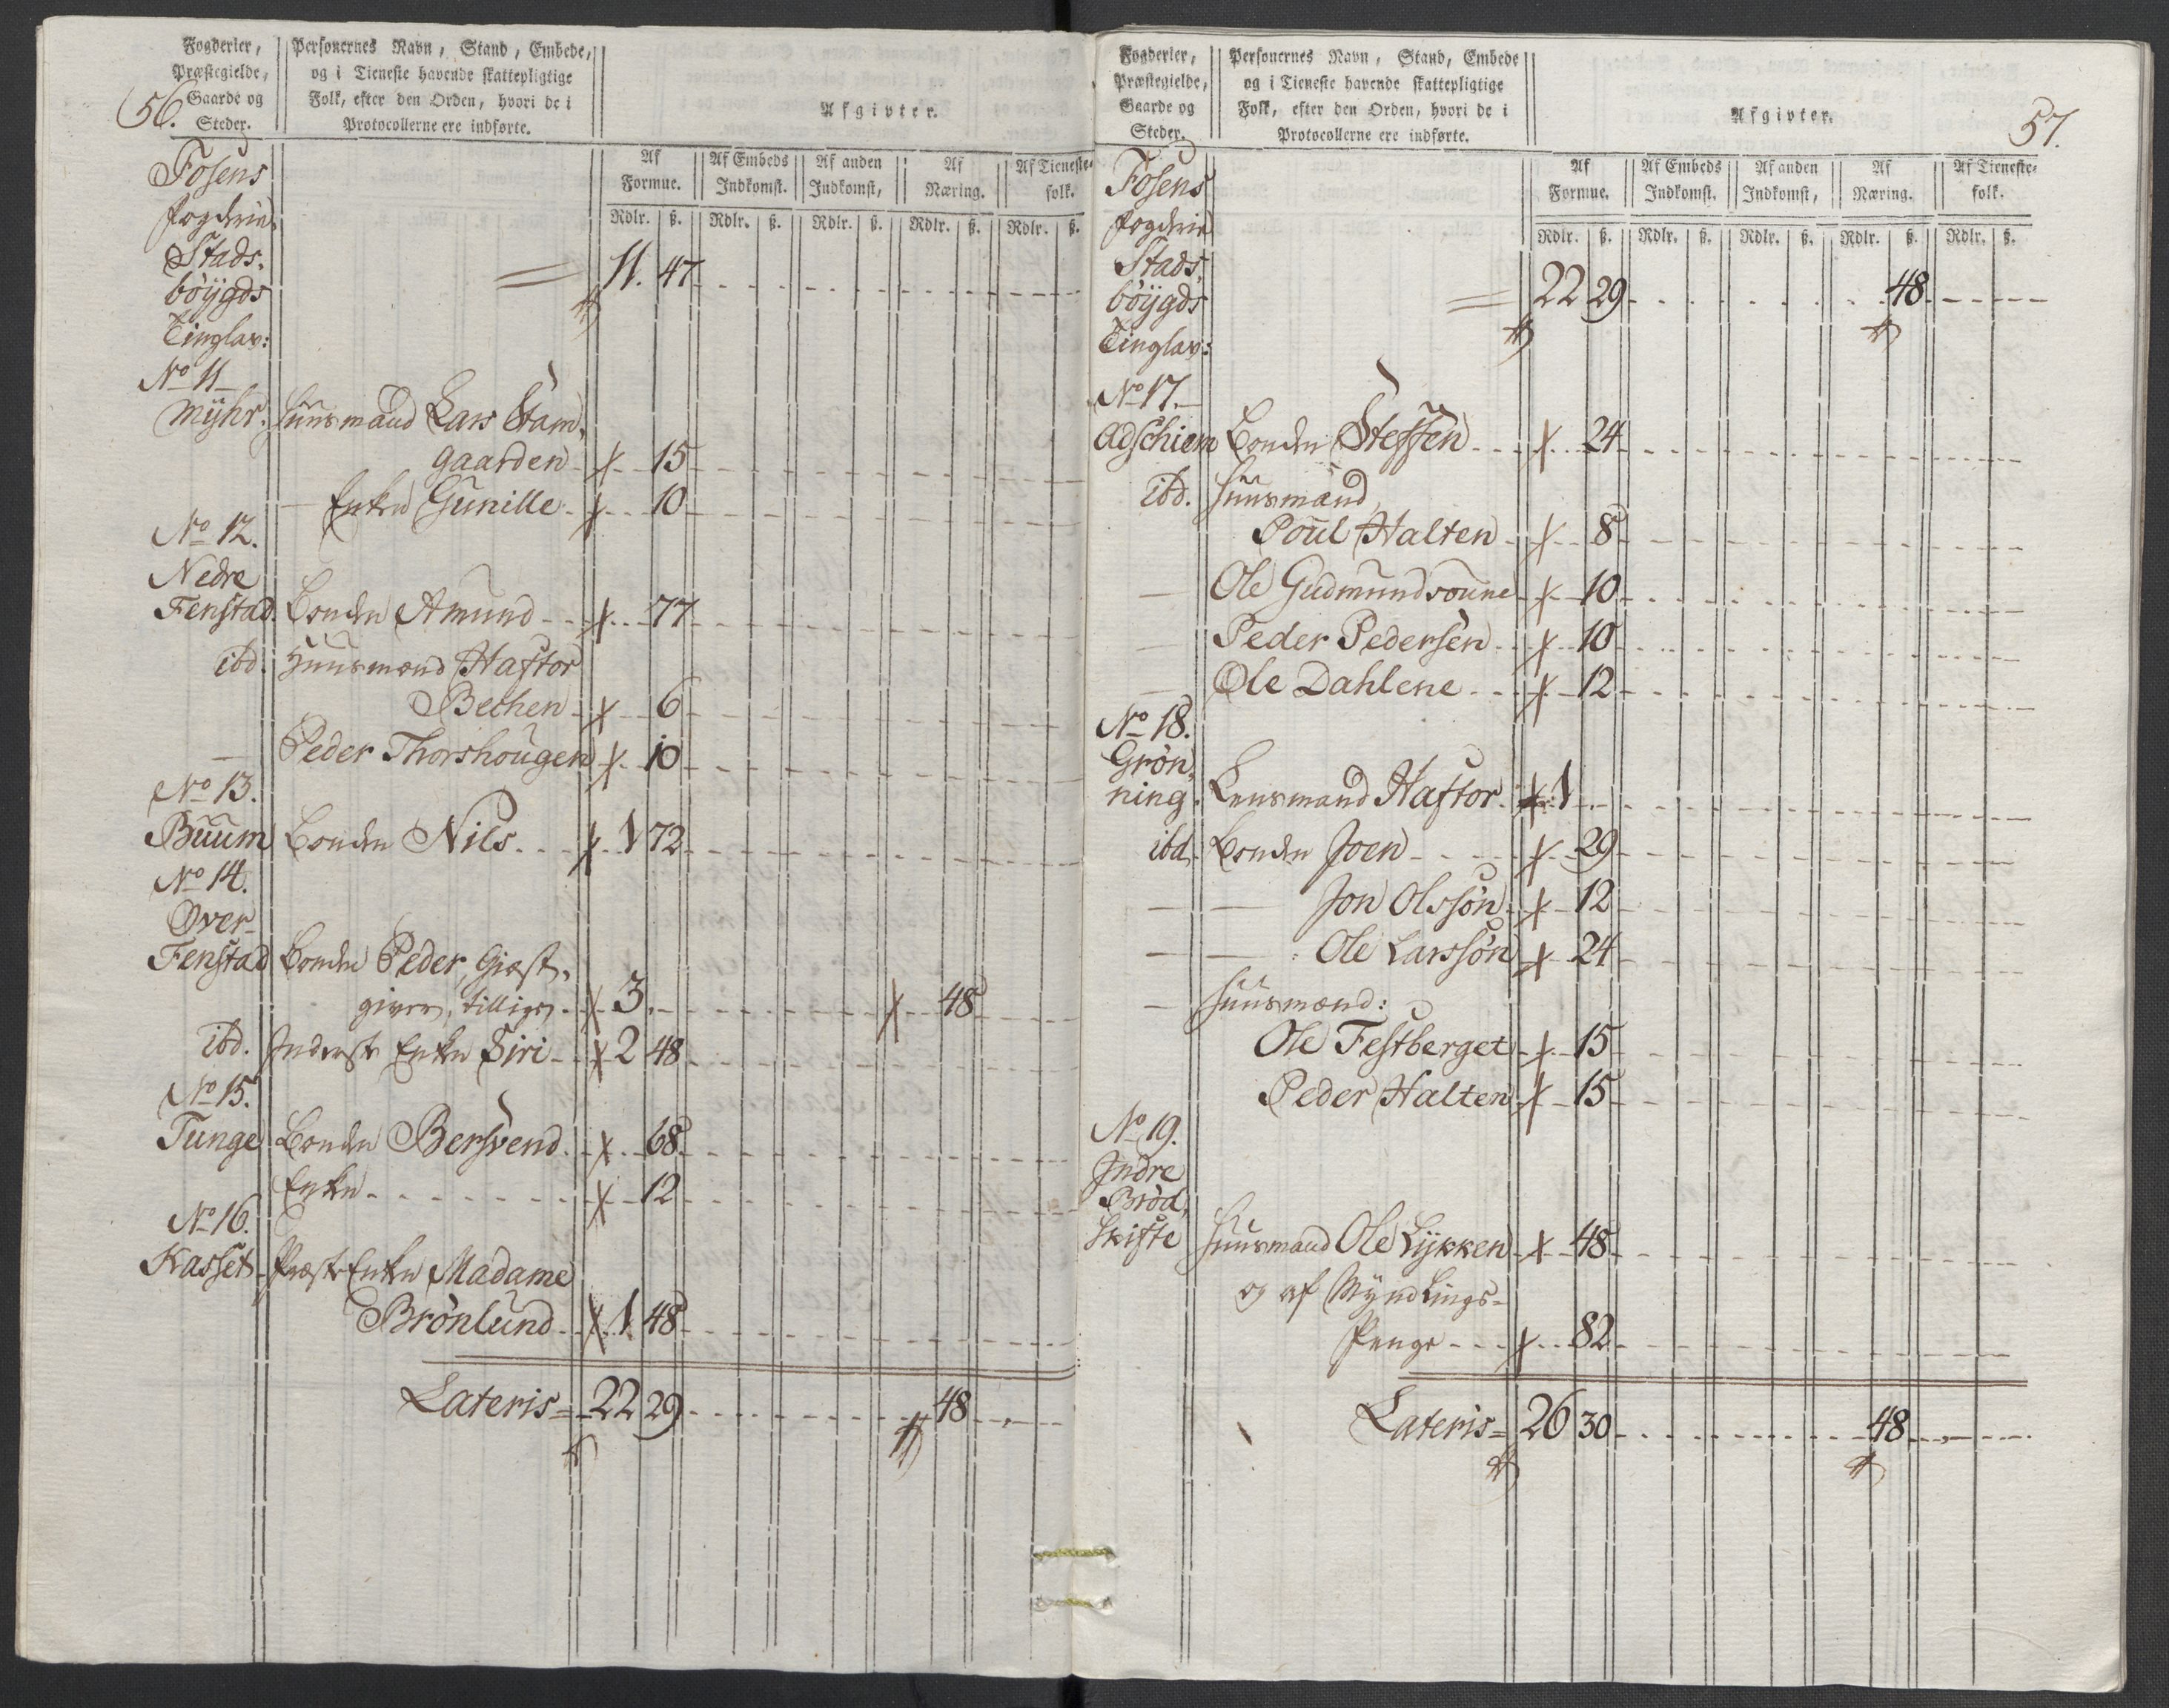 56.
Fogderier,
Præstegielde,
Gaarde og
Steder.
Personernes Navn, Stand, Embede,
og i Tieneste havende skattepligtige
Folk, efter den Orden, hvori de i
Protocollerne ere indførte.
Afgivter.
Af Formue. Af Embeds Indkomst. Af anden Indkomst, Af Næring. Af Tieneste- folk.
Rdlr. ß. Rdlr. ß. Rdlr. ß. Rdlr. ß. Rdlr. ß.
Fosens
fogderie
Stads-
böÿgds 11. 47
Tinglav:
No 11
Mÿhr. Huusmand Lars Stam-
gaarden 15
Enken Gunille 10
No 12.
Nedre
Fenstad Bonden Amund 77
ibd. Huusmænd Haftor
Bechen 6
— Peder Thorshougen 10
No 13.
Buum Bonden Nils 1 72
No 14.
Over-
Fenstad Bonden Peder, Giæst-
giver, tillige 3. 48
ibd. Inderst Enken Siri 2 48
No 15.
Tunge Bonden Bersvend 68
Enken 12
No 16.
Kasset Præst Enken Madame
Brönlund 1 48
Lateris 22 29 48
57.
Fogderier,
Præstegielde,
Gaarde og
Steder.
Personernes Navn, Stand, Embede
og i Tieneste havende skattepligtige
Folk, efter den Orden, hvori de i
Protocollerne ere indførte.
Afgivter.
Af Formue. Af Embeds Indkomst. Af anden Indkomst, Af Næring. Af Tieneste- folk.
Rdlr. ß. Rdlr. ß. Rdlr. ß. Rdlr. ß. Rdlr. ß.
Fosens
fogderie
Stads-
böÿgds 22 29 48
Tinglav:
No 17.
Adschiem Bonden Steffen 24
ibd. Huusmænd
Poul Halten 8
— Ole Gudmundsoune 10
— Peder Pedersen 10
— Ole Dahlene 12
No 18.
Grön-
ning. Lensmand Haftor 1
ibd. Bonden Joen 29
— — Jon Olssön 12
— — Ole Larssön 24
— Huusmænd:
Ole Festberget 15
Peder Halten 15
No 19.
Indre
Bröd-
skifte Huusmand Ole Lÿkken 48
og af Mÿndlings-
Penge 82
Lateris 26 30 48